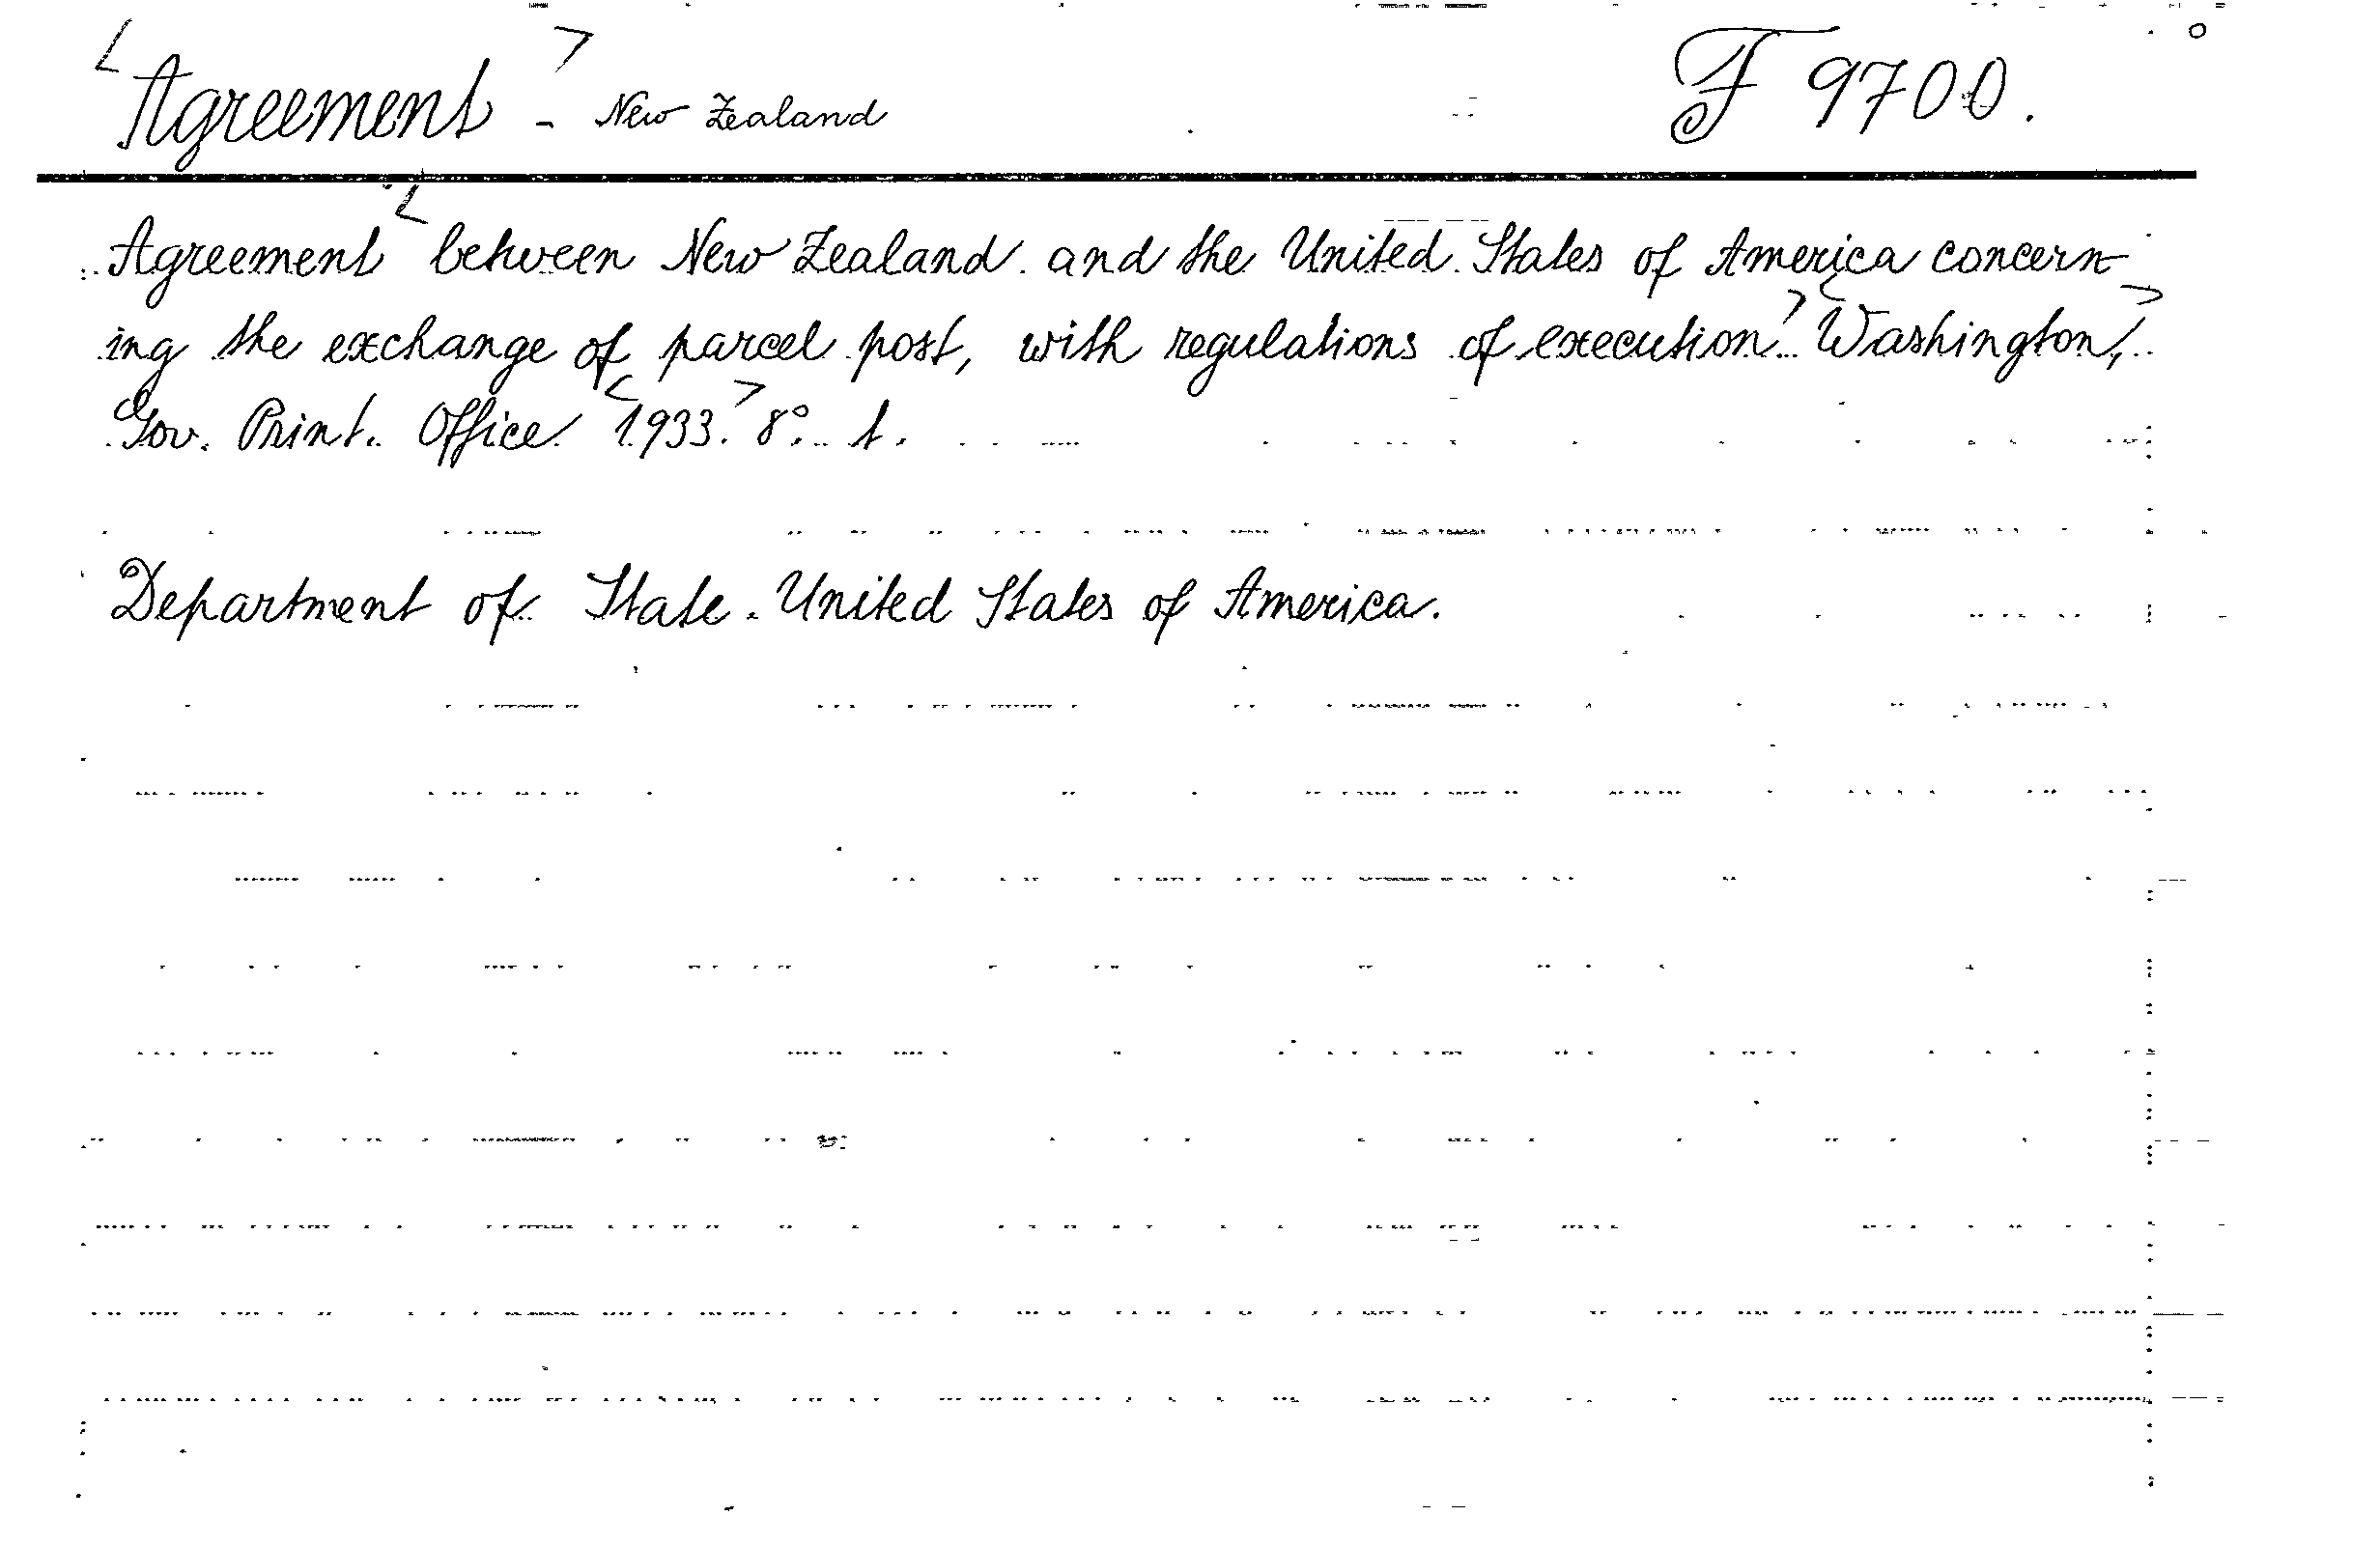 <Agreement> - New Zealand F 9700.
Agreement <between New Zealand and the United States of America concern-
ing the exchange of parcel post, with regulations of execution.> <Washington,>
Gov. Print. Office <1933.> 8°. t.
Department of State. United States of America.